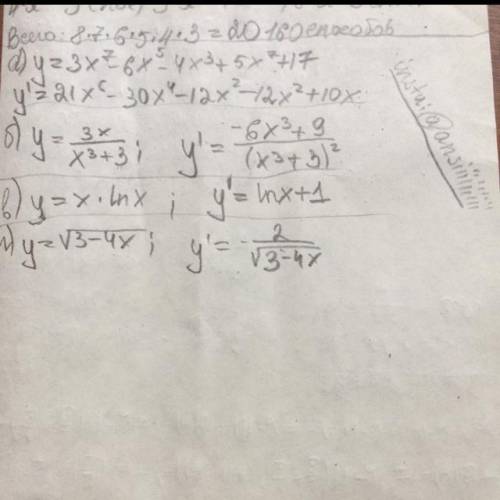 Всего: 8·7·6·5·4·3 = 20160 способов
а) y = 3x⁷ - 6x⁵ - 4x³ + 5x² + 17
y' = 21x⁶ - 30x⁴ - 12x² - 12x² + 10x
б) y = 3x / (x³+3) ; y' = (-6x³+9) / (x³+3)²
в) y = x · lnx ; y' = lnx + 1
y = √(3-4x) ; y' = - 2 / √(3-4x)